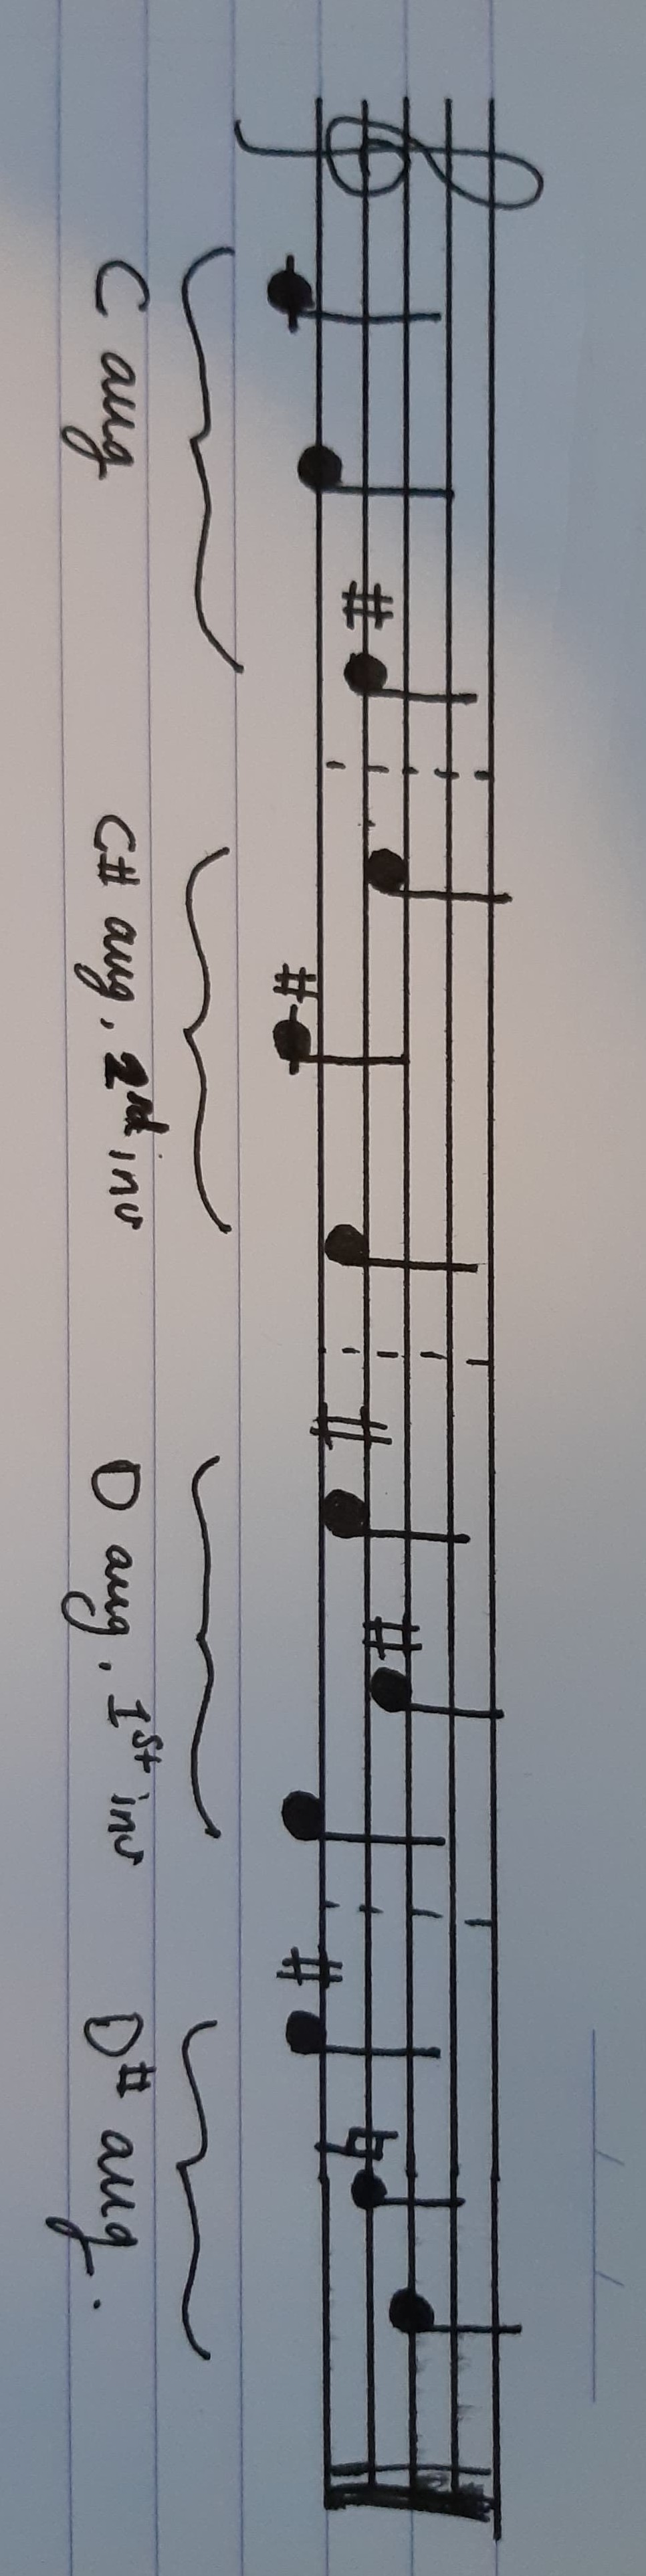 C aug C# aug, 2rd inv D aug, 1st inv D# aug.